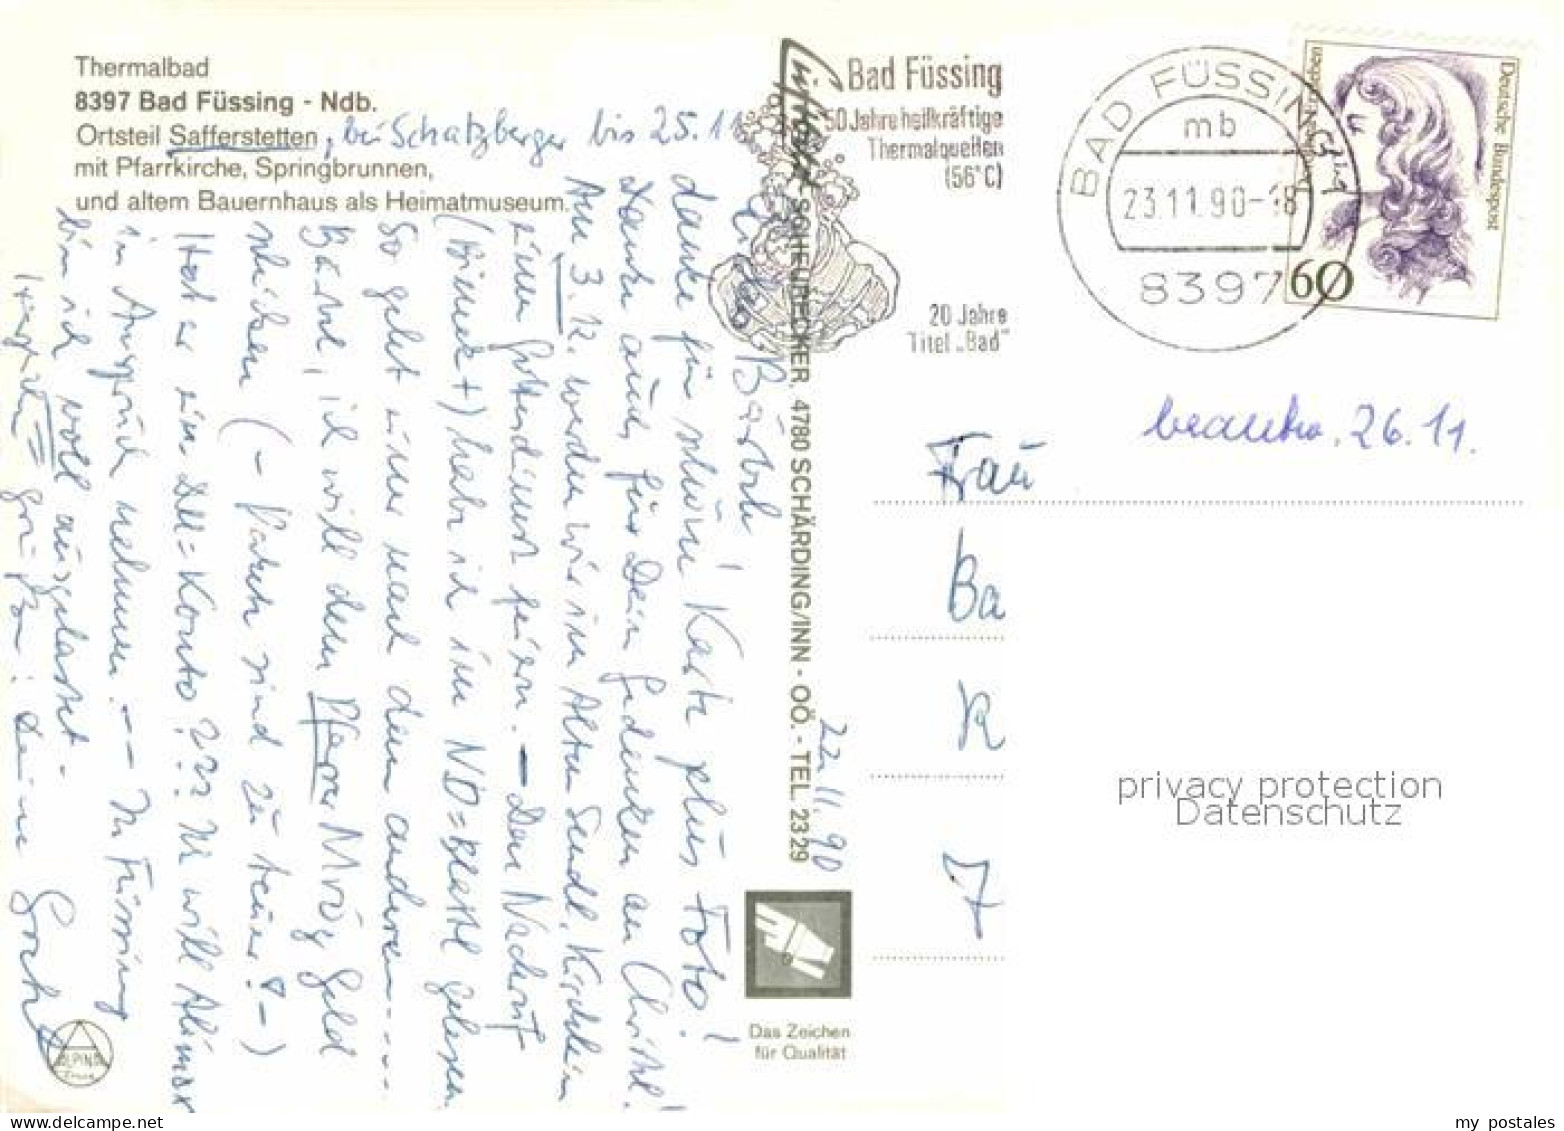 Thermalbad
8397 Bad Füssing - Ndb.
Ortsteil Safferstetten, bei Schatzberger bis 25.11
mit Pfarrkirche, Springbrunnen,
und altem Bauernhaus als Heimatmuseum.
Bad Füssing
50 Jahre heilkräftige
Thermalquellen
(56°C)
20 Jahre
Titel „Bad"
BAD FÜSSING
mb
23.11.90-18
8397
Deutsche Bundespost
60
22.11.90
Bärbl!
danke für schöne Karte plus Foto!
danke auch für Dein Gedenken an Christl!
Am 3.12. werden wir im Alten Sendl. Kirchlein
einen Gottesdienst feiern. — Den Nachruf
hab ich im ND=Blattl gelesen.
So geht einer nach dem anderen.....
Bärbl, ich will dem Pfarrer Geld
schicken (- sind zu teuer? -)
Hat er ein DM=Konto??? Ni will
in Anspruch nehmen. -- In Füssing
bin ich voll ausgelastet.
Deine
SCHEURECKER, 4780 SCHÄRDING/INN - OÖ. - TEL. 2329
Das Zeichen
für Qualität
ALPINA
beantw. 26.11.
Frau
Ba
K
privacy protection
Datenschutz
my postales